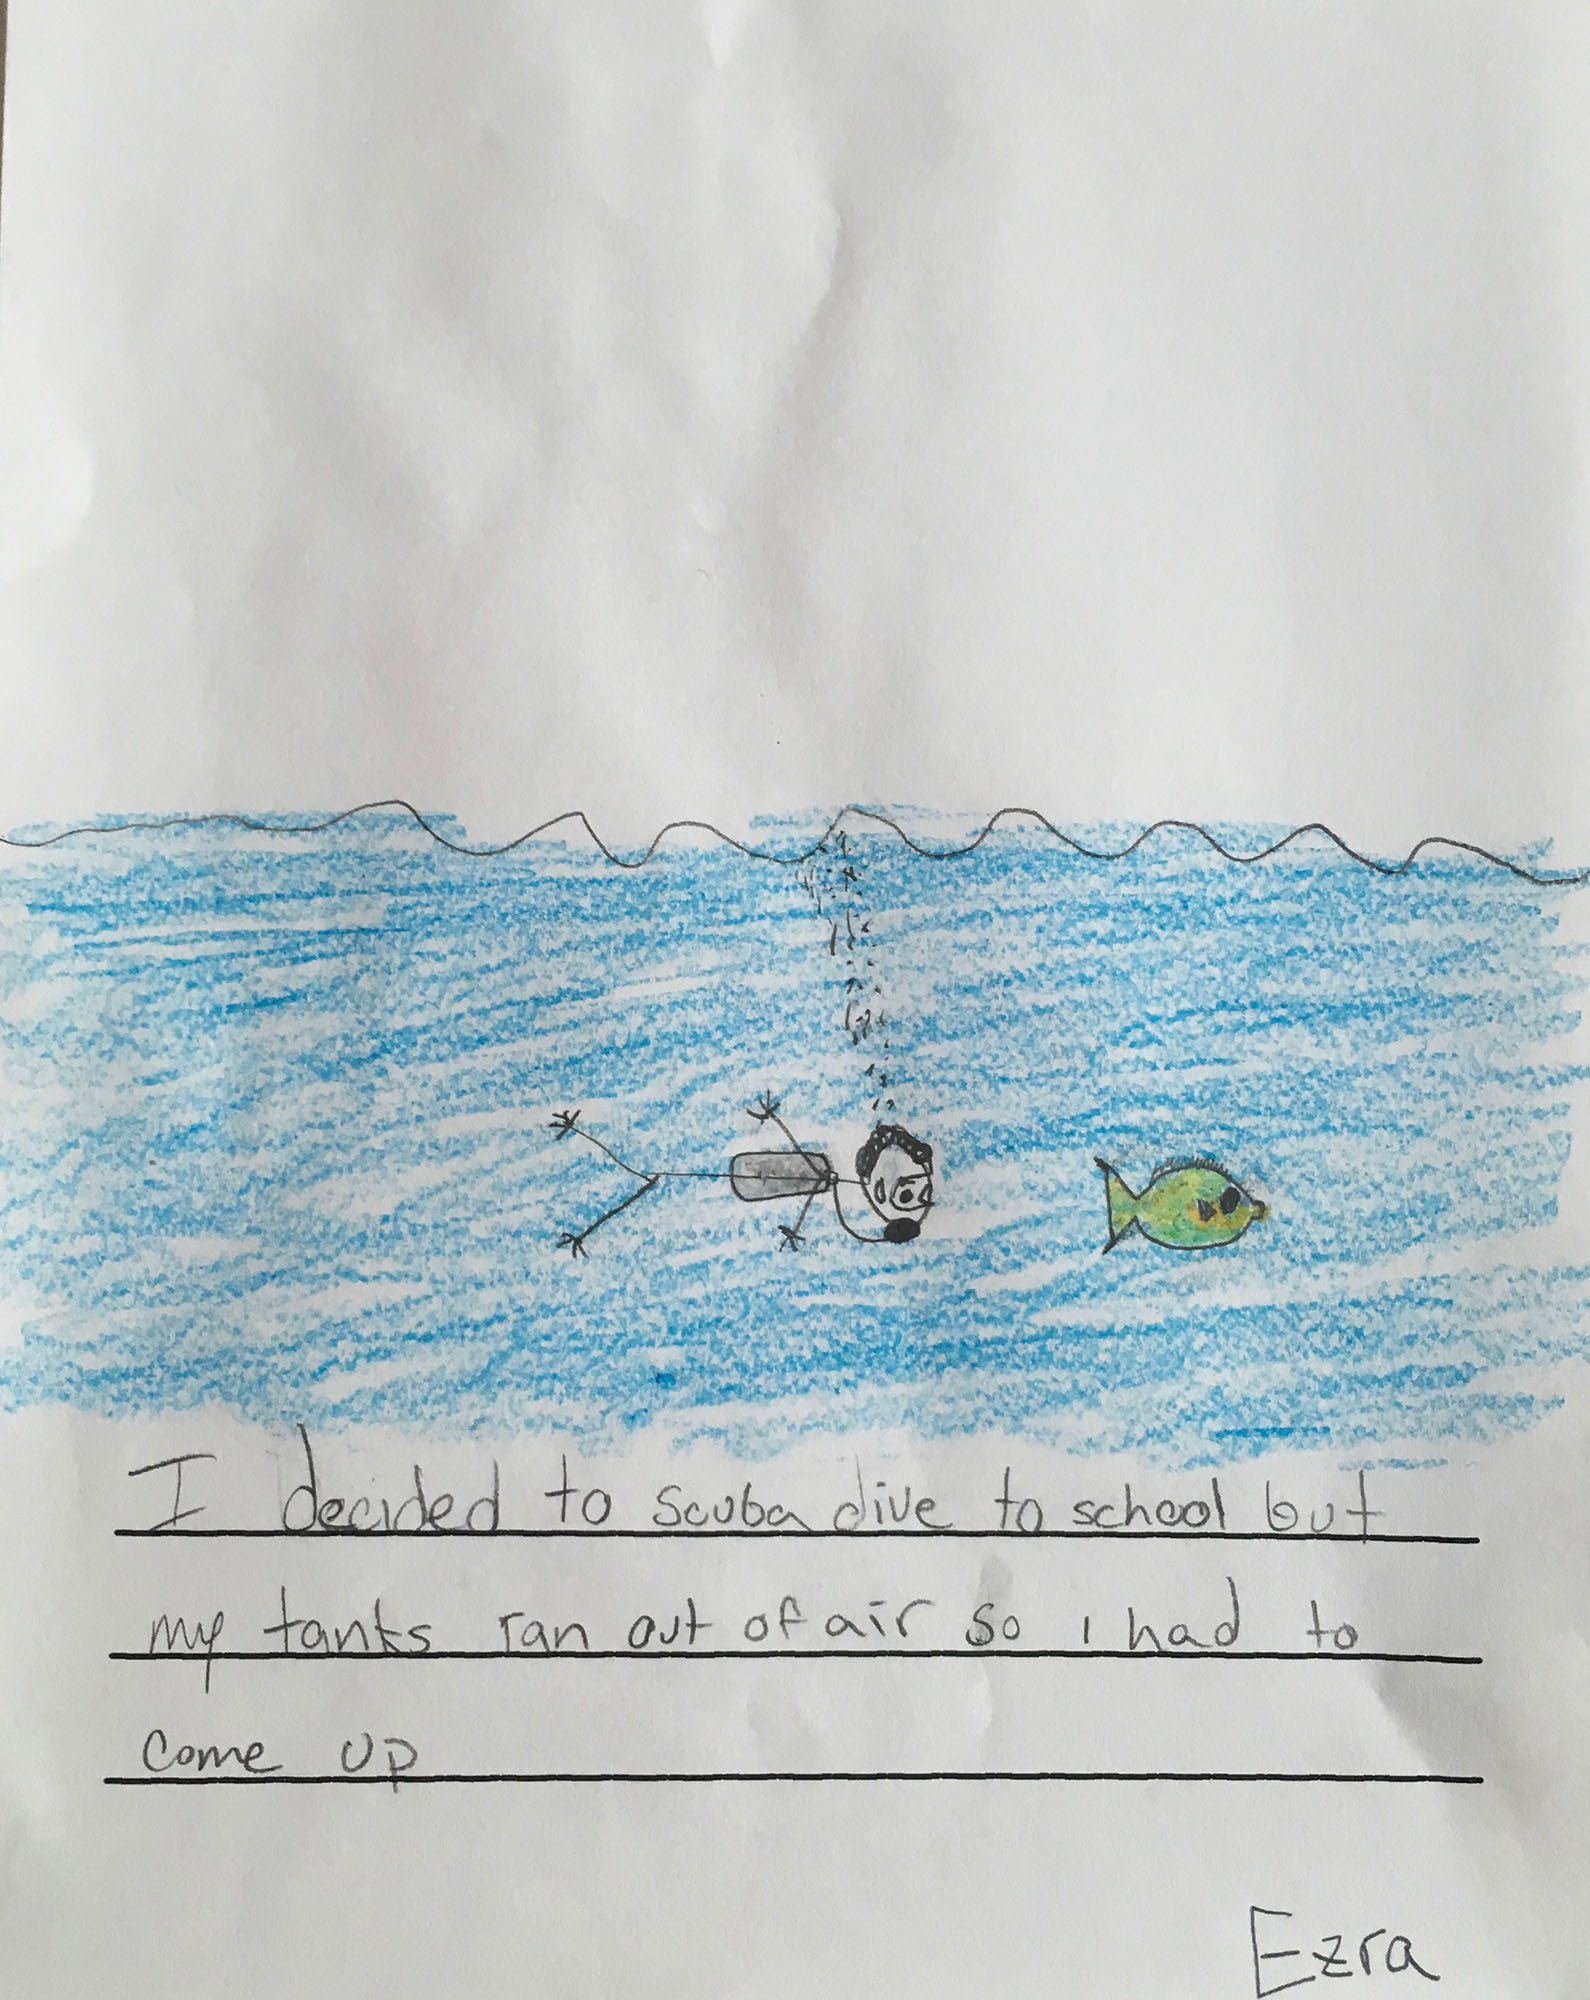 I decided to scuba dive to school but
my tanks ran out of air so i had to
come up
Ezra